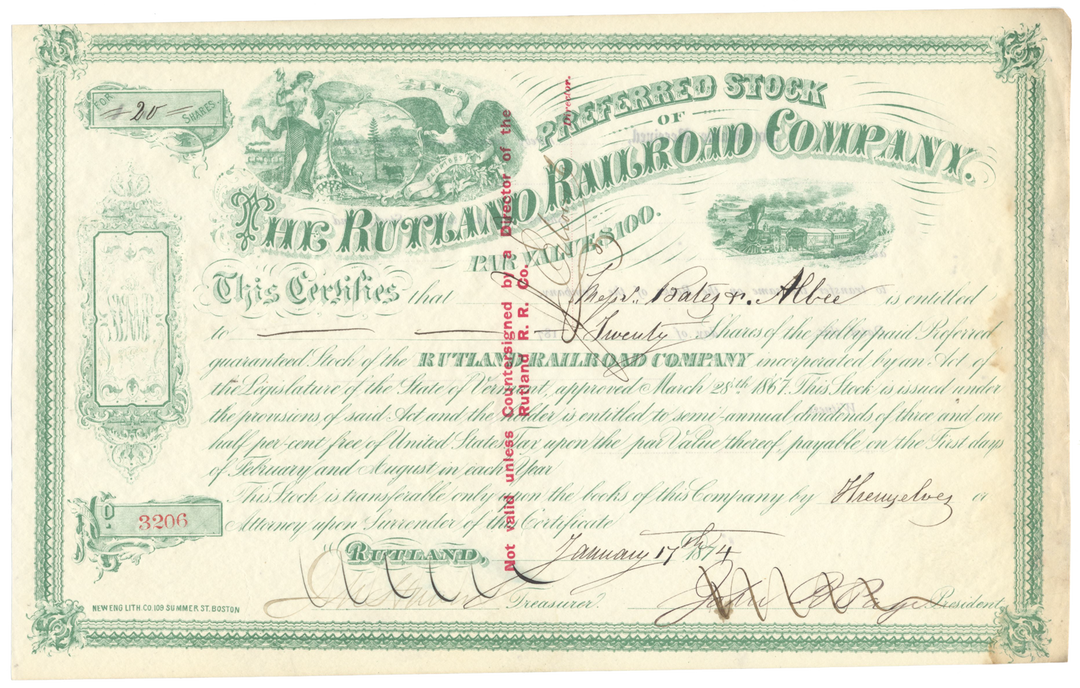 FOR 20 SHARES
PREFERRED STOCK
OF
THE RUTLAND RAILROAD COMPANY.
PAR VALUE $100.
This Certifies that Mess. Bates & Albee is entitled
to Twenty Shares of the fully paid Preferred
guaranteed Stock of the RUTLAND RAILROAD COMPANY incorporated by an Act of
the Legislature of the State of Vermont, approved March 28th 1867. This Stock is issued under
the provisions of said Act and the holder is entitled to semi-annual dividends of three and one
half per-cent free of United States Tax upon the par Value thereof, payable on the First days
of February and August in each Year
This Stock is transferable only upon the books of this Company by Themselves or
Attorney upon Surrender of the Certificate
No. 3206
RUTLAND, January 17th 1874
Treasurer.
John B Page President
NEW ENG LITH. CO. 109 SUMMER ST. BOSTON
Not valid unless Countersigned by a Director of the
Rutland R. R. Co.
Director.